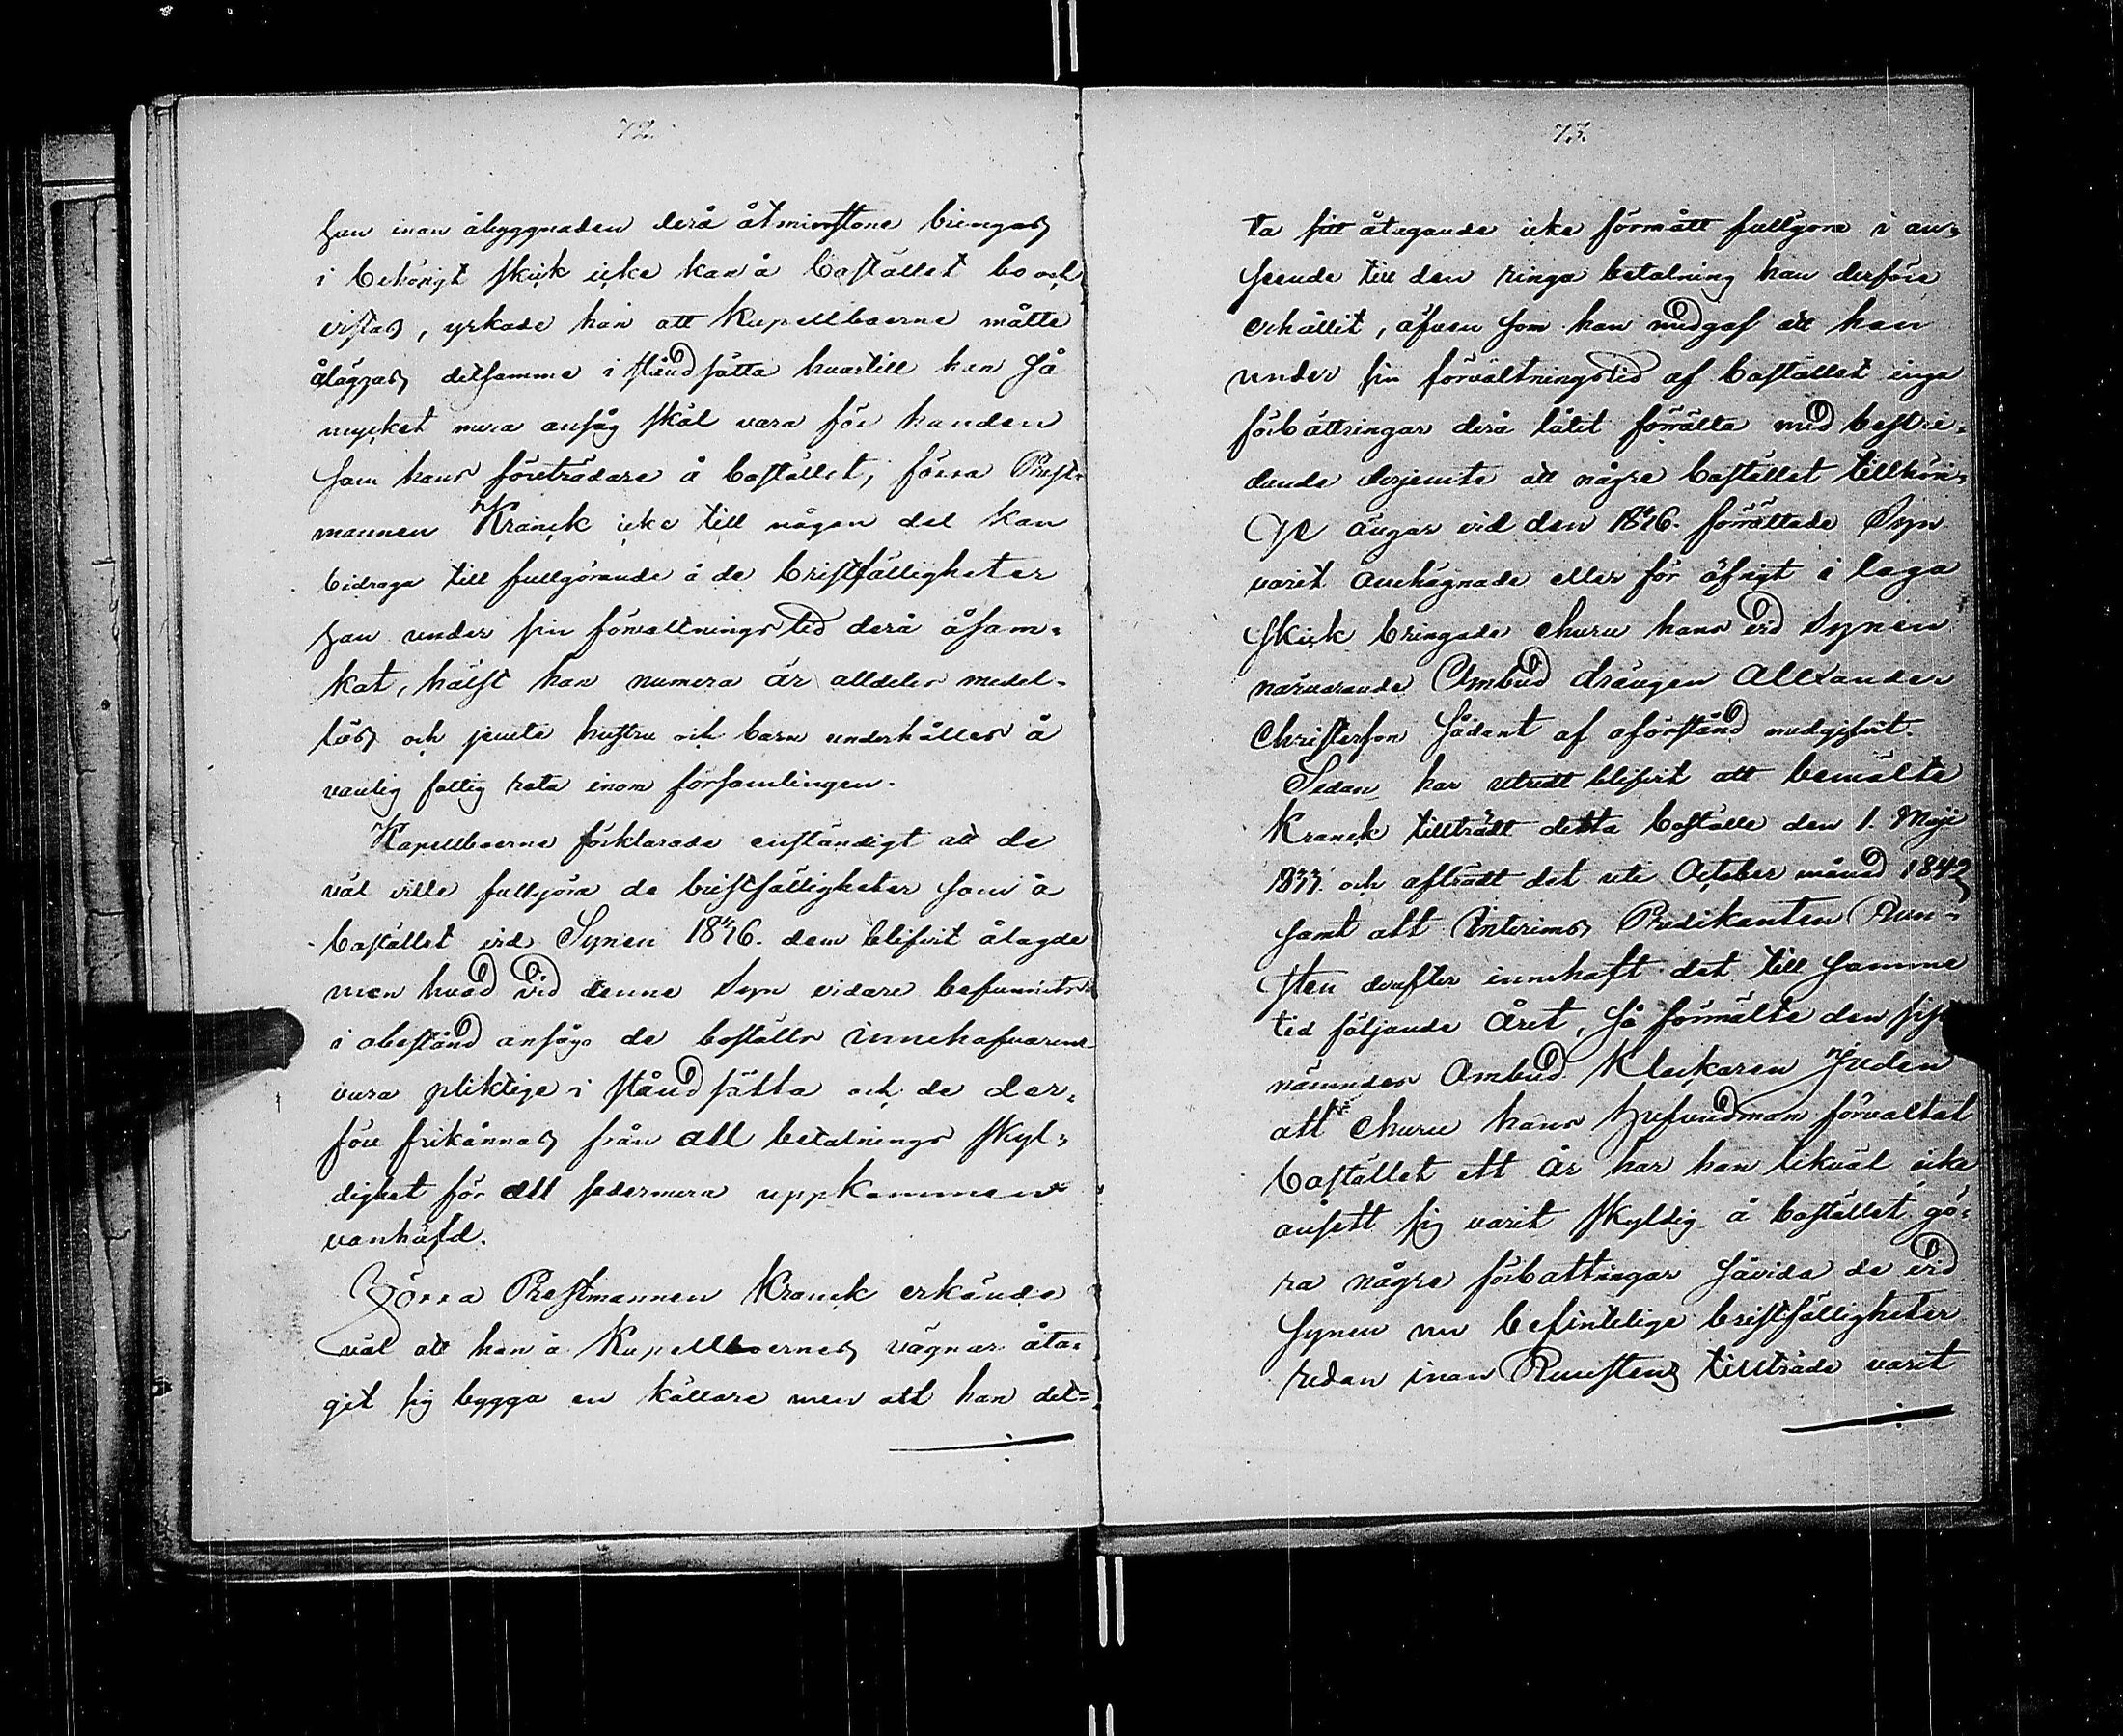 72.
han inan åbyggnaden derå åtminstone bringas
i behörigt skick icke kan å bostället bo och
vistas, yrkade han att Kapellboerne måtte
åläggas detsamma i stånd sätta hvartill han så
mycket mera ansåg skäl vara för handen
som hans företrädare å bostället, förra Prest-
mannen Kranck icke till någon del kan
bidraga till fullgörande å de bristfälligheter
han under sin förvaltningstid derå åsam-
kat, hälst han numera är alldeles medel-
lös och jemte hustru och barn underhålles å
vanlig fattig rota inom församlingen.
Kapellboerne förklarade enständigt att de
väl ville fullgöra de bristfälligheter som å
bostället vid Synen 1836. dem blifvit ålagde
men hvad vid denne Syn vidare befunnits
i obestånd ansågo de boställs innehafvarene
vara pliktige i stånd sätta och de der-
före frikännas från all betalnings skyl-
dighet för all sedermera uppkommen
vanhäfd.
Förra Prestmannen Kranck erkände
väl att han å Kapellboernes vägnar åta-
git sig bygga en källare men att han det-
73.
ta sitt åtagande icke förmått fullgöra i an-
seende till den ringa betalning han derföre
erhållit, äfven som han medgaf att han
under sin förvaltningstid af bostället inga
förbättringar derå låtit förrätta med bestri-
dande derjemte att några bostället tillhöri-
ge ängar vid den 1836. förrättade Syn
varit ouehägnade eller för öfrigt i laga
skick bringade ehuru hans vid Synen
närvarande Ombud drängen Allexander
Christersson sådant af oförstånd medgifvit.
Sedan har utredt blifvit att bemälte
Kranck tillträdt detta boställe den 1. Maji
1833. och afträdt det uti October månad 1842
samt att Interims Predikanten Run-
sten derefter innehaft det till samme
tid följande året, så förmälte den sist
nämndes Ombud Klockaren Juden
att ehuru hans hufvudman förvaltat
bostället ett år har han likväl icke
ansett sig varit skyldig å bostället gö-
ra några förbättringar såvida de vid
Synen nu befintelige bristfälligheter
redan inan Runstens tillträde varit